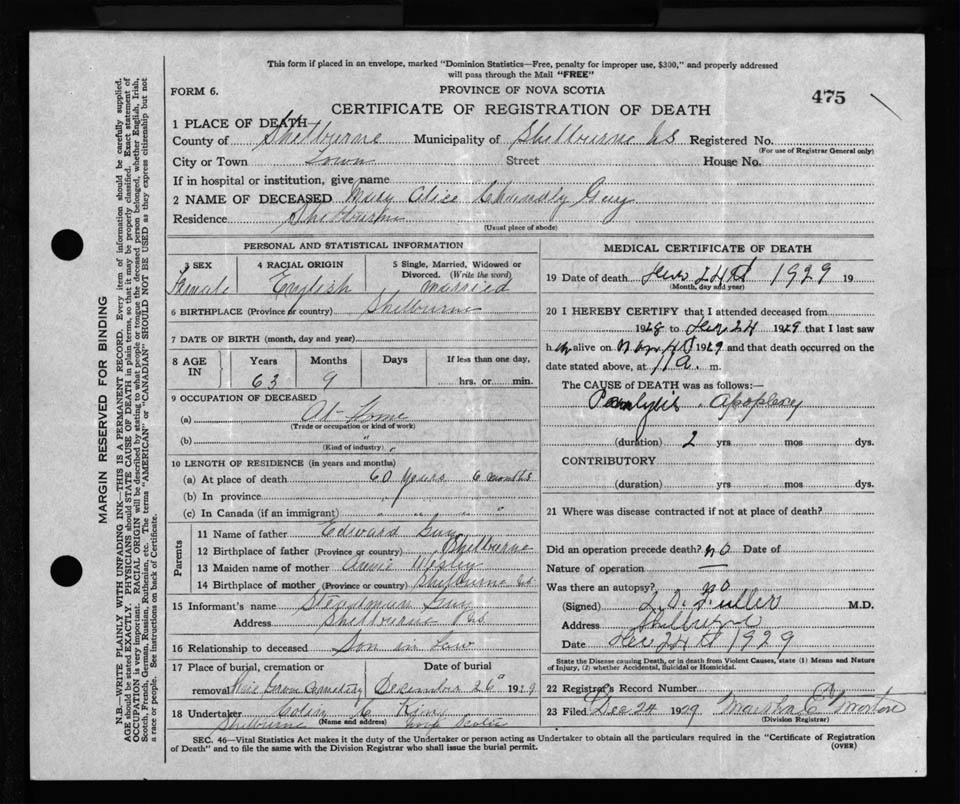 This form if placed in an envelope, marked "Dominion Statistics—Free, penalty for improper use, $300," and properly addressed
will pass through the Mail "FREE"
FORM 6.
PROVINCE OF NOVA SCOTIA
475
CERTIFICATE OF REGISTRATION OF DEATH
1 PLACE OF DEATH
County of Shelburne Municipality of Shelburne NS Registered No.
(For use of Registrar General only)
City or Town Town Street House No.
If in hospital or institution, give name
2 NAME OF DECEASED Mary Alice Guy
Residence Shelburne
(Usual place of abode)
PERSONAL AND STATISTICAL INFORMATION
3 SEX 4 RACIAL ORIGIN 5 Single, Married, Widowed or
Divorced. (Write the word)
Female English married
6 BIRTHPLACE (Province or country) Shelburne
7 DATE OF BIRTH (month, day and year)
8 AGE IN Years Months Days If less than one day,
63 9 hrs. or min.
9 OCCUPATION OF DECEASED
(a) At Home
(Trade or occupation or kind of work)
(b) "
(Kind of industry)
10 LENGTH OF RESIDENCE (in years and months)
(a) At place of death 60 years 6 months
(b) In province
(c) In Canada (if an immigrant) " " " "
Parents
11 Name of father Edward Guy
12 Birthplace of father (Province or country) Shelburne
13 Maiden name of mother Annie
14 Birthplace of mother (Province or country) Shelburne NS
15 Informant's name Guy
Address Shelburne N.S.
16 Relationship to deceased Son in Law
17 Place of burial, cremation or Date of burial
removal Cemetery December 26" 1929
18 Undertaker King
Shelburne (Name and address) Nova Scotia
MEDICAL CERTIFICATE OF DEATH
19 Date of death 24 1929 19
(Month, day and year)
20 I HEREBY CERTIFY that I attended deceased from
1928 to 24 1929 that I last saw
h alive on 1929 and that death occurred on the
date stated above, at 11 a. m.
The CAUSE OF DEATH was as follows:—
Paralysis Apoplexy
(duration) 2 yrs mos dys.
CONTRIBUTORY
(duration) yrs mos dys.
21 Where was disease contracted if not at place of death?
Did an operation precede death? no Date of
Nature of operation —
Was there an autopsy? no
(Signed) L. O. Fuller M.D.
Address Shelburne
Date Dec 24 1929
State the Disease causing Death, or in death from Violent Causes, state (1) Means and Nature
of Injury, (2) whether Accidental, Suicidal or Homicidal.
22 Registrar's Record Number
23 Filed Dec 24 1929 Morton
(Division Registrar)
SEC. 46—Vital Statistics Act makes it the duty of the Undertaker or person acting as Undertaker to obtain all the particulars required in the "Certificate of Registration
of Death" and to file the same with the Division Registrar who shall issue the burial permit.
(OVER)
MARGIN RESERVED FOR BINDING
N.B.—WRITE PLAINLY WITH UNFADING INK—THIS IS A PERMANENT RECORD. Every item of information should be carefully supplied.
AGE should be stated EXACTLY. PHYSICIANS should STATE CAUSE OF DEATH in plain terms, so that it may be properly classified. Exact statement of
OCCUPATION is very important. RACIAL ORIGIN will be described by stating to what people or tongue the deceased person belonged, whether English, Irish,
Scotch, French, German, Russian, Ruthenian, etc. The terms "AMERICAN" or "CANADIAN" SHOULD NOT BE USED as they express citizenship but not
a race or people. See instructions on back of Certificate.